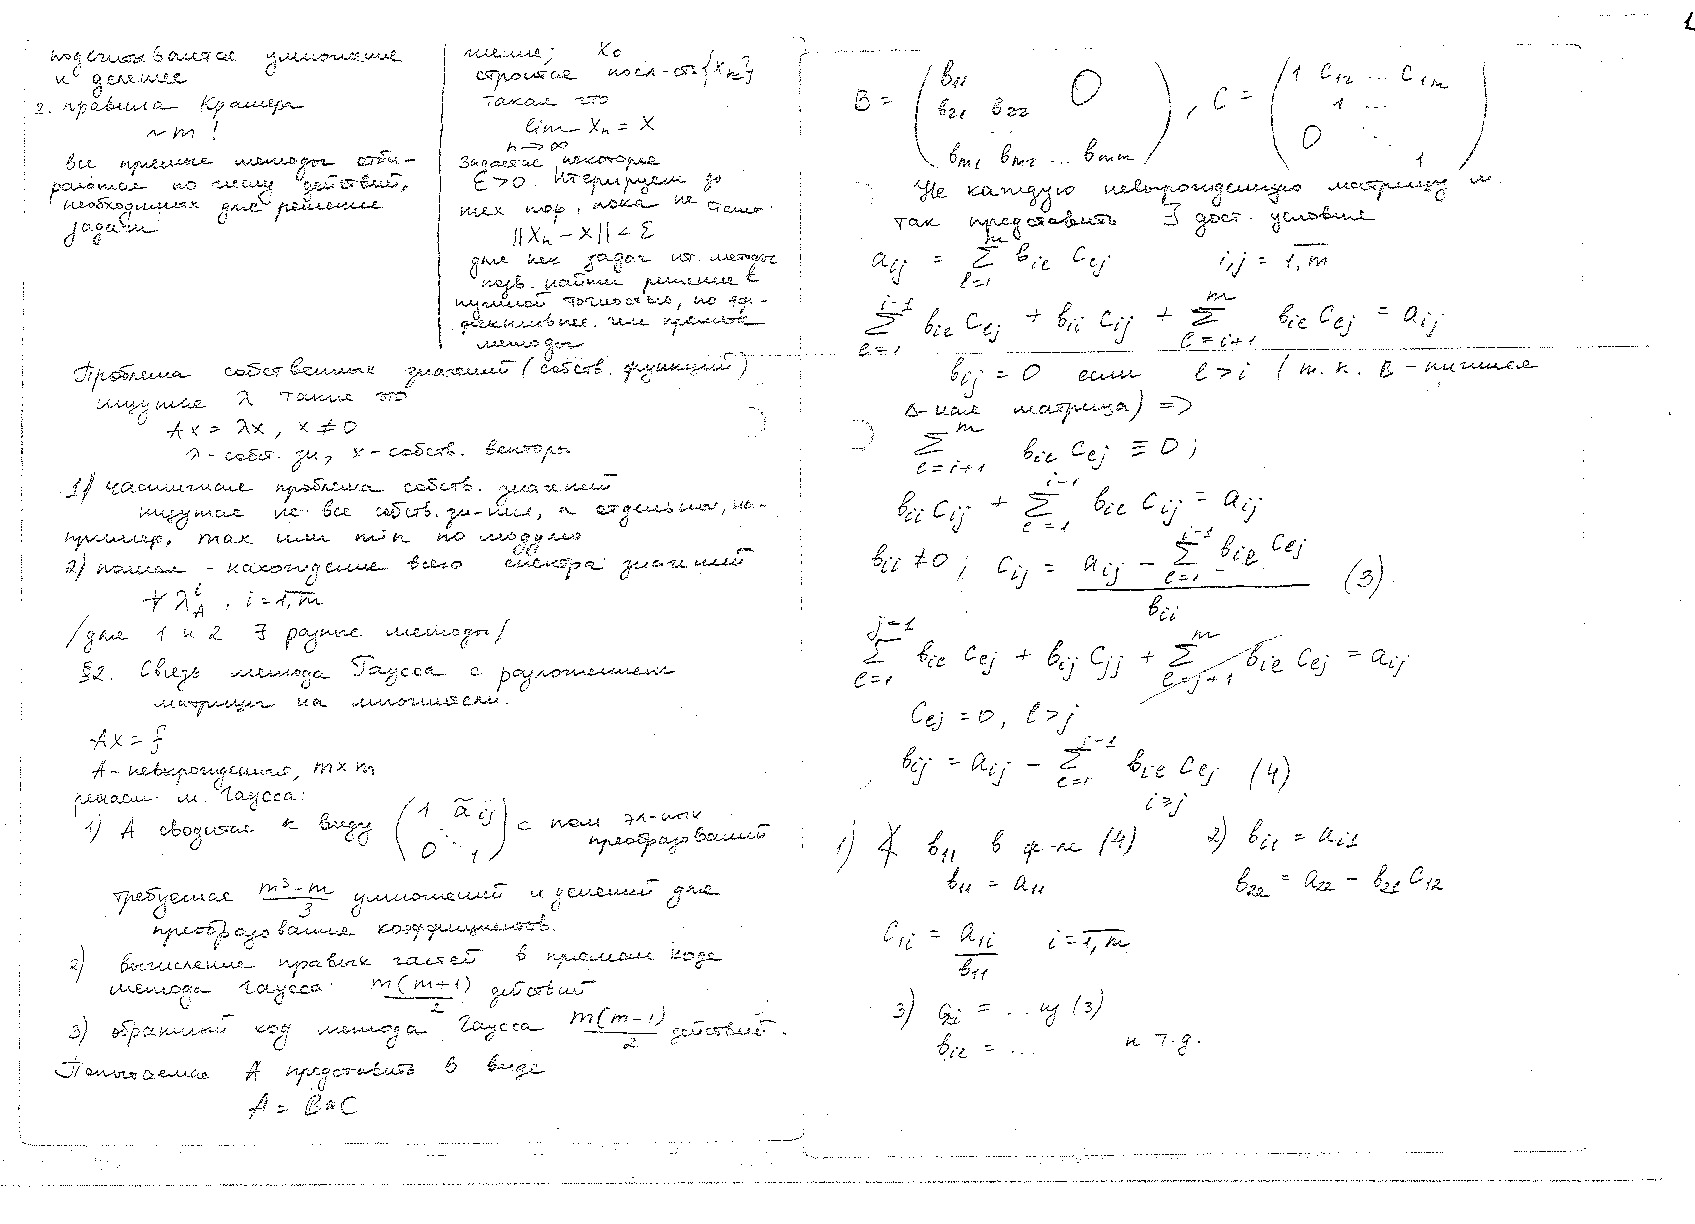 подсчитывается умножение
и деление
2. правила Крамера
~ m!
все прямые методы отби-
раются по числу действий,
необходимых для решения
задачи
шение; x₀
строится посл-сть {xₙ}
такая что
lim xₙ = x
n→∞
Задается некоторое
ε>0. Итерируем до
тех пор, пока не
||xₙ - x|| < ε
для нек задач ит. методы
позв. найти решение с
нужной точностью, но эф-
фективнее, чем прямые
методы
Проблема собственных значений (собств. функций)
ищутся λ такие что
Ax = λx, x ≠ 0
λ - собст. зн, x - собств. векторы
1) частичная проблема собств. значений
ищутся не все собств. зн-ния, а отдельные, на-
пример, max или min по модулю
2) полная - нахождение всего спектра значений
∀ λ_A^i, i = 1,m
/для 1 и 2 ∃ разные методы/
§2. Связь метода Гаусса с разложением
матрицы на множители.
Ax = f
A - невырожденная, m×m
решаем м. Гаусса:
1) A сводится к виду (1 ã_ij 0 ⋱ 1) с пом эл-ных
преобразований
требуется (m³-m)/3 умножений и делений для
преобразования коэффициентов.
2) вычисление правых частей в прямом ходе
метода Гаусса: m(m+1)/2 действий
3) обратный ход метода Гаусса m(m-1)/2 действий.
Попытаемся A представить в виде
A = B*C
1
B = (b₁₁ 0 b₂₁ b₂₂ b_m1 b_m2 ... b_mm), C = (1 C₁₂ ... C_1m 1 ... 0 ⋱ 1)
Не каждую невырожденную матрицу м.
так представить ∃ дост. условие
a_ij = Σ_{l=1}^{m} b_il c_lj i,j = 1,m
Σ_{l=1}^{i-1} b_il c_lj + b_ii c_ij + Σ_{l=i+1}^{m} b_il c_lj = a_ij
b_ij = 0 если l>i (т.к. B - нижняя
Δ-ная матрица) =>
Σ_{l=i+1}^{m} b_il c_lj ≡ 0;
b_ii c_ij + Σ_{l=1}^{i-1} b_il c_ij = a_ij
b_ii ≠ 0; c_ij = (a_ij - Σ_{l=1}^{i-1} b_il c_lj)/b_ii (3)
Σ_{l=1}^{j-1} b_il c_lj + b_ij c_jj + Σ_{l=j+1}^{m} b_il c_lj = a_ij
c_lj = 0, l>j
b_ij = a_ij - Σ_{l=1}^{j-1} b_il c_lj (4)
i≥j
1) b₁₁ в ф-ле (4)
b₁₁ = a₁₁
c_1i = a_1i/b₁₁ i = 1,m
2) b_i1 = a_i1
b₂₂ = a₂₂ - b₂₁ c₁₂
3) c_2i = ... из (3)
b_i2 = ... и т.д.